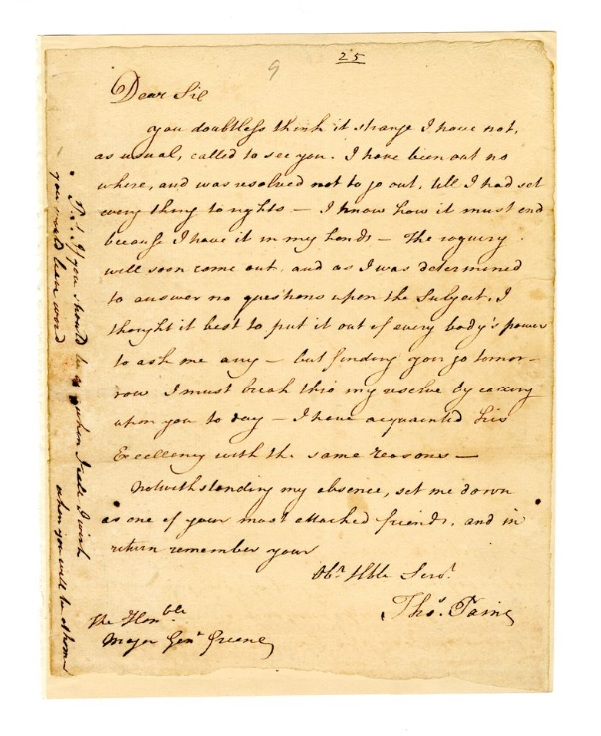 9
25
Dear Sir
you doubtless think it strange I have not,
as usual, called to see you. I have been out no
where, and was resolved not to go out, till I had set
every thing to rights — I know how it must end
because I have it in my hands — The roguery
will soon come out, and as I was determined
to answer no questions upon the subject, I
thought it best to put it out of every body's power
to ask me any — but finding you go tomor-
row I must break thro my reserve by
upon you to day — I have acquainted his
Excellency with the same reasons —
Notwithstanding my absence, set me down
as one of your most attached friends, and in
return remember your
Obt. Hble Servt.
Thos. Paine
The Honble
Major Genl Greene
P.S. If you should be when I call I wish
you would leave word when you will be at home